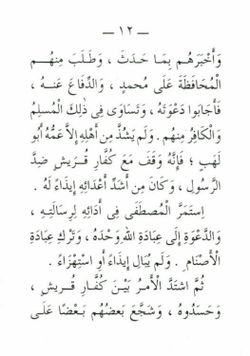 — ١٢ —
وَأَخْبَرَهُم بِمَا حَدَثَ ، وَطَلَبَ مِنْهُم
الْمُحَافَظَةَ عَلَى مُحمدٍ ، وَالدِّفَاعَ عَنهُ ،
فَأَجَابوا دَعْوَتَهُ ، وَتَسَاوَى فِى ذٰلِكَ الْمُسْلِمُ
وَالْكَافِرُ مِنهُم . وَلَم يَشُذَّ مِن أَهْلِهِ إِلاَّ عَمُّهُ أَبُو
لَهَبٍ ؛ فَإِنَّهُ وَقَفَ مَعَ كُفَّارِ قُرَيشٍ ضِدَّ
الرَّسُولِ ، وَكَانَ مِن أَشَدِّ أَعْدَائِهِ إِيذَاءً لَهُ .
اِستَمَرَّ الْمُصْطَفَى فِى أَدَائِهِ لِرِسَالَتِهِ ،
وَالدَّعْوَةِ إِلَى عِبَادَةِ اللهِ وَحْدَهُ ، وَتَرْكِ عِبَادَةِ
الْأَصْنَامِ . وَلَم يُبَالِ إِيذَاءً أَوِ اسْتِهْزَاءً .
ثُمَّ اشتَدَّ الأَمرُ بَيْنَ كُفَّارِ قُرَيشٍ ،
وَحَسَدُوهُ ، وَشَجَّعَ بَعْضُهُم بَعْضًا عَلَى